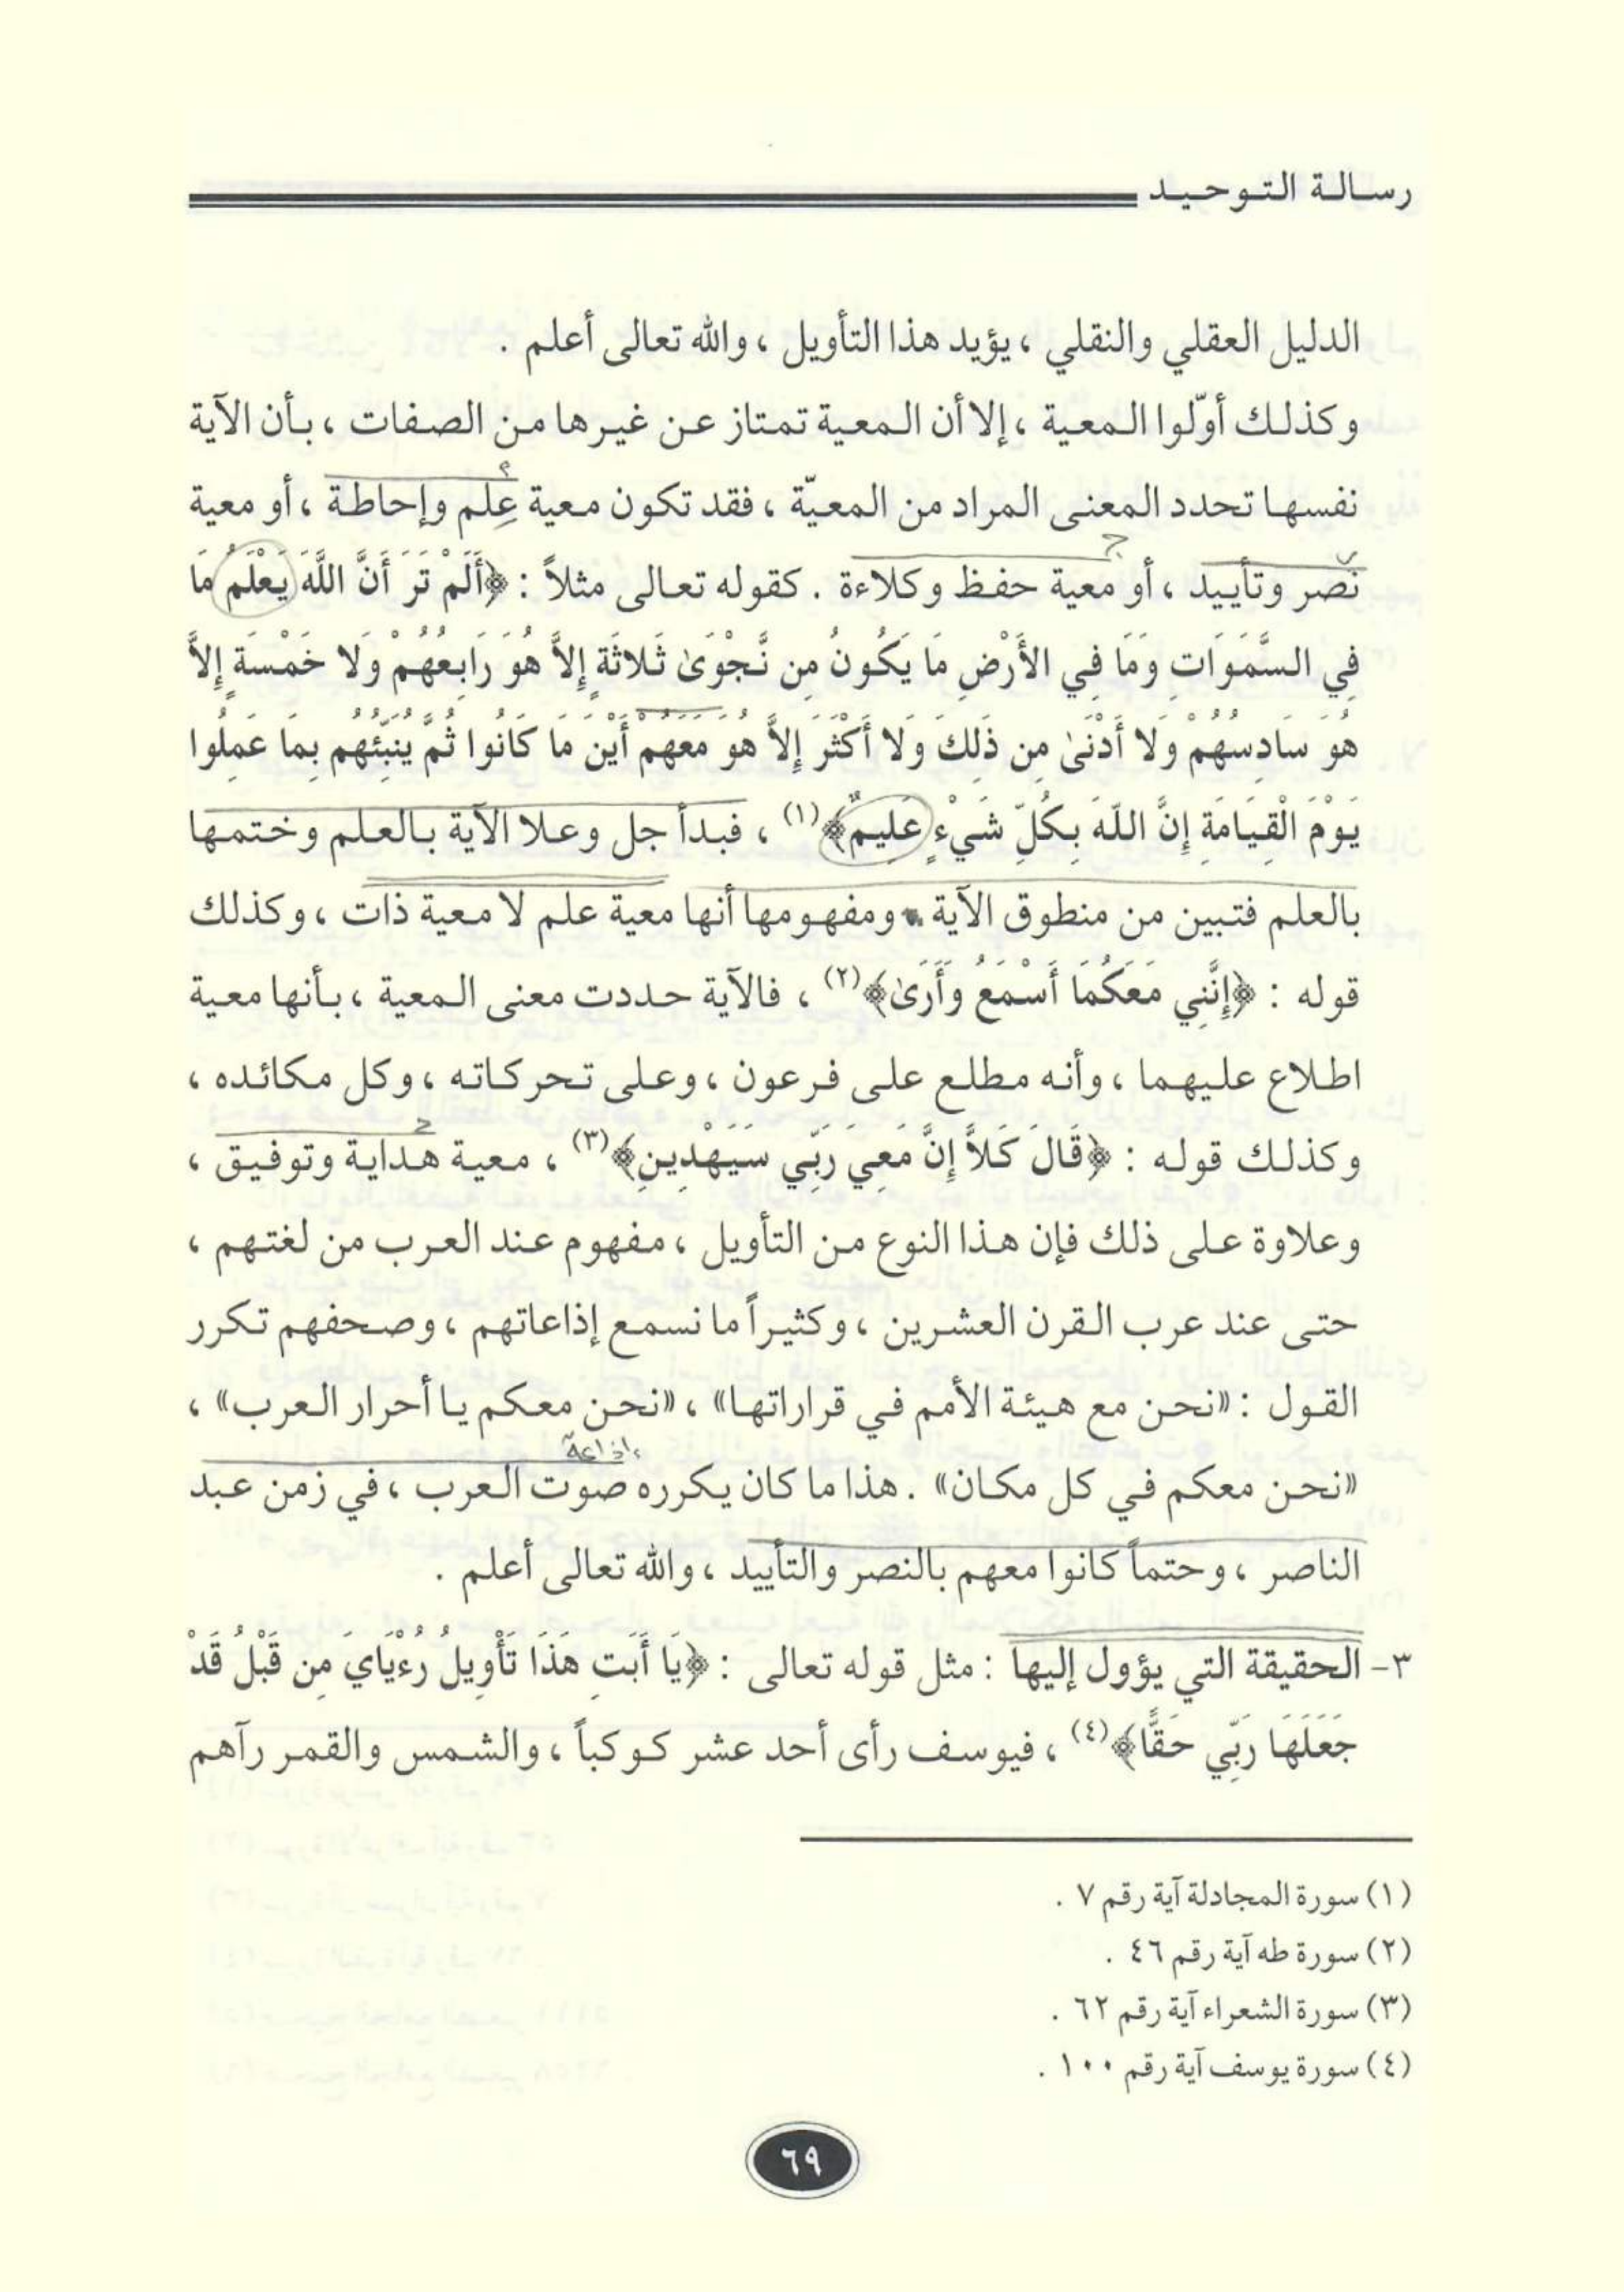 رسالة التوحيد
الدليل العقلي والنقلي ، يؤيد هذا التأويل ، والله تعالى أعلم .
وكذلك أوّلوا المعية ، إلا أن المعية تمتاز عن غيرها من الصفات ، بأن الآية
نفسها تحدد المعنى المراد من المعيّة ، فقد تكون معية عِلم وإحاطة ، أو معية
نصر وتأييد ، أو معية حفظ وكلاءة . كقوله تعالى مثلاً : ﴿أَلَمْ تَرَ أَنَّ اللَّهَ يَعْلَمُ مَا
فِي السَّمَوَاتِ وَمَا فِي الأَرْضِ مَا يَكُونُ مِن نَّجْوَىٰ ثَلاثَةٍ إِلاَّ هُوَ رَابِعُهُمْ وَلا خَمْسَةٍ إِلاَّ
هُوَ سَادِسُهُمْ وَلا أَدْنَىٰ مِن ذَلِكَ وَلا أَكْثَرَ إِلاَّ هُوَ مَعَهُمْ أَيْنَ مَا كَانُوا ثُمَّ يُنَبِّئُهُم بِمَا عَمِلُوا
يَوْمَ الْقِيَامَةِ إِنَّ اللَّهَ بِكُلِّ شَيْءٍ عَلِيمٌ﴾(١) ، فبدأ جل وعلا الآية بالعلم وختمها
بالعلم فتبين من منطوق الآية ، ومفهومها أنها معية علم لا معية ذات ، وكذلك
قوله : ﴿إِنَّنِي مَعَكُمَا أَسْمَعُ وَأَرَىٰ﴾(٢) ، فالآية حددت معنى المعية ، بأنها معية
اطلاع عليهما ، وأنه مطلع على فرعون ، وعلى تحركاته ، وكل مكائده ،
وكذلك قوله : ﴿قَالَ كَلاَّ إِنَّ مَعِيَ رَبِّي سَيَهْدِينِ﴾(٣) ، معية هداية وتوفيق ،
وعلاوة على ذلك فإن هذا النوع من التأويل ، مفهوم عند العرب من لغتهم ،
حتى عند عرب القرن العشرين ، وكثيراً ما نسمع إذاعاتهم ، وصحفهم تكرر
القول : «نحن مع هيئة الأمم في قراراتها» ، «نحن معكم يا أحرار العرب» ،
إذاعة
«نحن معكم في كل مكان» . هذا ما كان يكرره صوت العرب ، في زمن عبد
الناصر ، وحتماً كانوا معهم بالنصر والتأييد ، والله تعالى أعلم .
٣- الحقيقة التي يؤول إليها : مثل قوله تعالى : ﴿يَا أَبَتِ هَذَا تَأْوِيلُ رُءْيَايَ مِن قَبْلُ قَدْ
جَعَلَهَا رَبِّي حَقًّا﴾(٤) ، فيوسف رأى أحد عشر كوكباً ، والشمس والقمر رآهم
(١) سورة المجادلة آية رقم ٧ .
(٢) سورة طه آية رقم ٤٦ .
(٣) سورة الشعراء آية رقم ٦٢ .
(٤) سورة يوسف آية رقم ١٠٠ .
٦٩